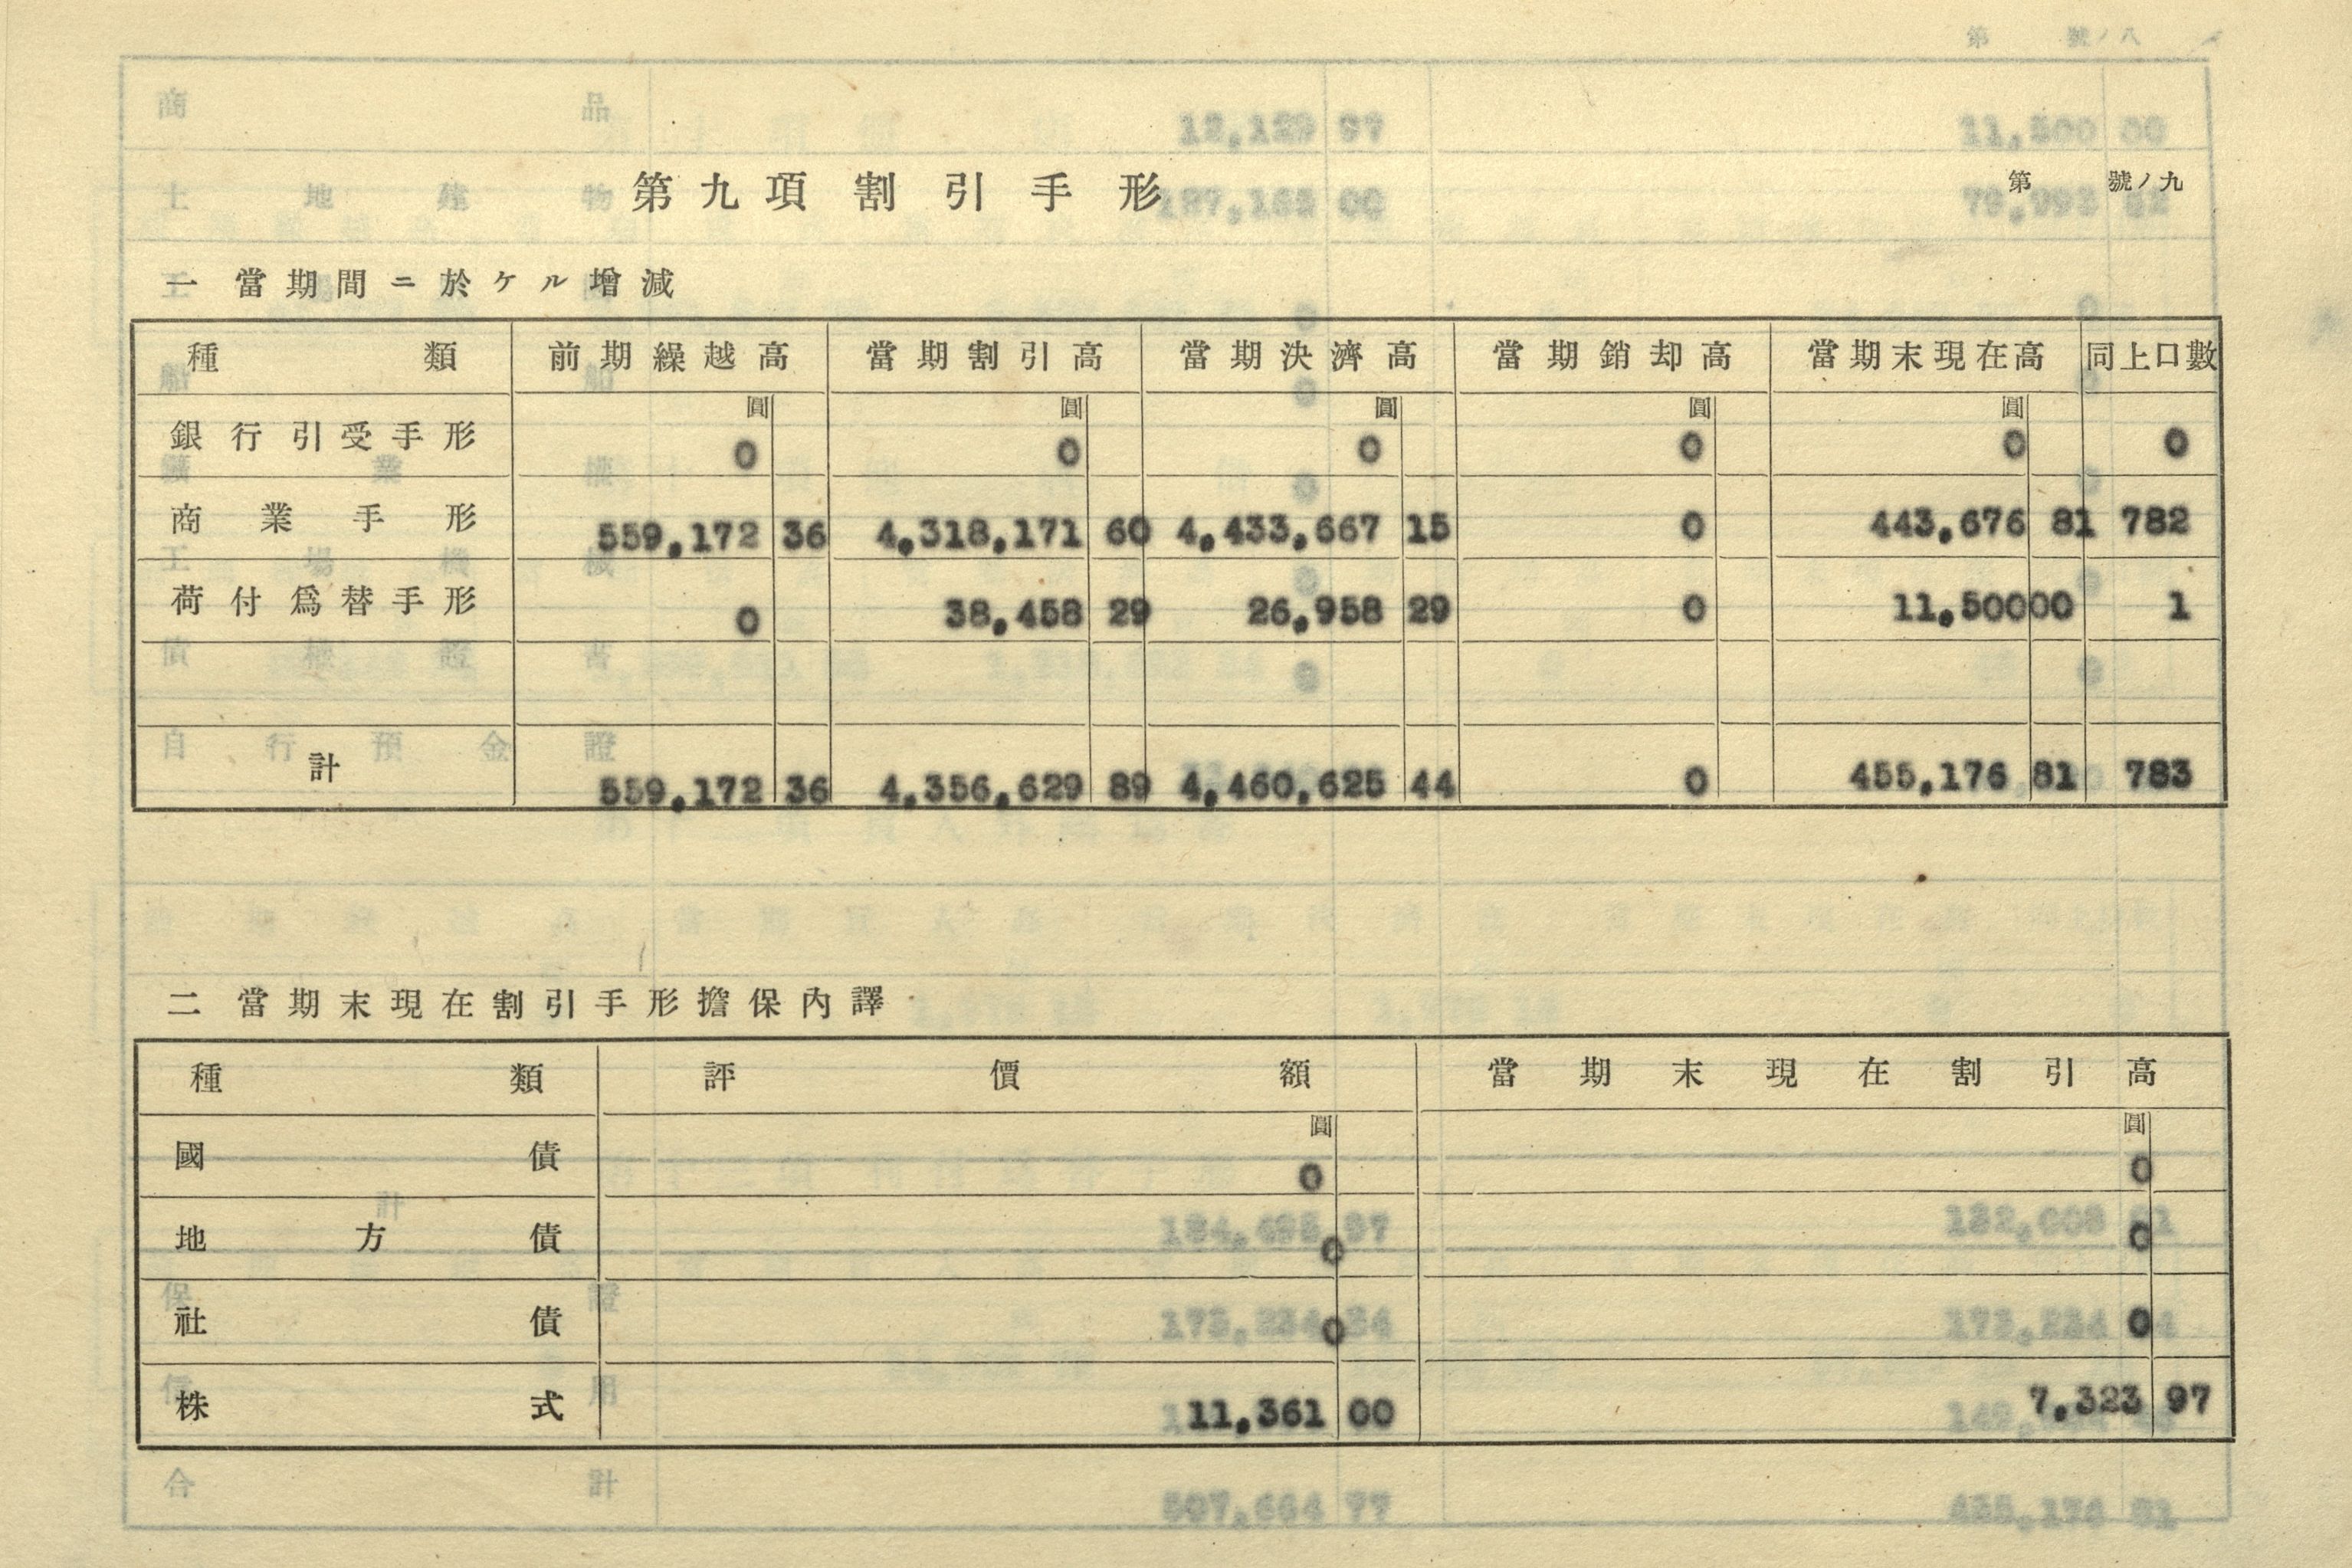 第九項 割引手形
第 號ノ九
一 當期間ニ於ケル增減
種類 前期繰越高 當期割引高 當期決濟高 當期銷却高 當期末現在高 同上口數
圓 圓 圓 圓 圓
銀行引受手形 0 0 0 0 0 0
商業手形 559,172 36 4,318,171 60 4,433,667 15 0 443,676 81 782
荷付爲替手形 0 38,458 29 26,958 29 0 11,500 00 1
計 559,172 36 4,356,629 89 4,460,625 44 0 455,176 81 783
二 當期末現在割引手形擔保內譯
種類 評價額 當期末現在割引高
圓 圓
國債 0 0
地方債 0 0
社債 0 0
株式 11,361 00 7,323 97